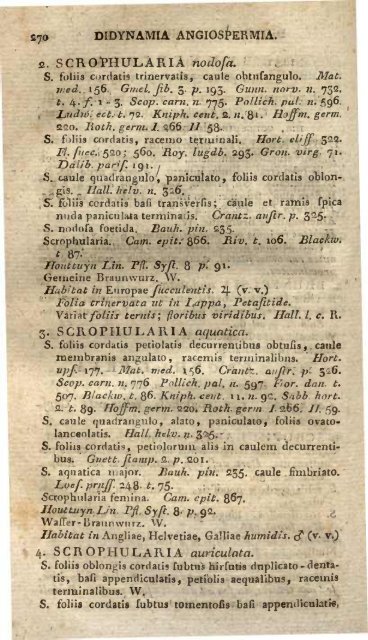 270 DIDYNAMIA ANGIOSPERMIA.
2. SCROPHULARIA nodoſa.
S. foliis cordatis trinervatis, caule obtuſangulo. Mat.
med. 156. Gmel. ſib. 3. p. 193. Gunn. norv. n. 732.
t. 4. f. 1 - 3. Scop. carn. n. 775. Pollich. pal. n. 596.
Ludw. ect. t. 72. Kniph. cent. 2. n. 81. Hoffm. germ.
220. Roth. germ. I. 266 II 58.
S. foliis cordatis, racemo terminali. Hort. cliff. 322.
Fl. ſuec. 520; 560. Roy. lugdb. 293. Gron. virg. 71.
Dalib. pariſ. 191.
S. caule quadrangulo, paniculato, foliis cordatis oblon-
gis. Hall. helv. n. 326.
S. foliis cordatis baſi transverſis; caule et ramis ſpica
nuda paniculata terminatis. Crantz. auſtr. p. 325.
S. nodoſa foetida. Bauh. pin. 235.
Scrophularia. Cam. epit. 866. Riv. t. 106. Blackw.
t. 87.
Houttuyn Lin. Pfl. Syſt. 8 p. 91.
Gemeine Braunwurz. W.
Habitat in Europae ſucculentis. ♃ (v. v.)
Folia trinervata ut in Lappa, Petaſitide.
Variat foliis ternis; floribus viridibus. Hall. l. c. R.
3. SCROPHULARIA aquatica.
S. foliis cordatis petiolatis decurrentibus obtuſis, caule
membranis angulato, racemis terminalibus. Hort.
upſ. 177. Mat. med. 156. Crantz. auſtr. p. 326.
Scop. carn. n. 776 Pollich. pal. n. 597. Flor. dan. t.
507. Blackw. t. 86. Kniph. cent. 11. n. 92. Sabb hort.
2. t. 89. Hoffm. germ. 220. Roth. germ I. 266. II. 59.
S. caule quadrangulo, alato, paniculato, foliis ovato-
lanceolatis. Hall. helv. n. 325.
S. foliis cordatis, petiolorum alis in caulem decurrenti-
bus. Guett. ſtamp. 2. p. 201.
S. aquatica major. Bauh. pin. 235. caule fimbriato.
Loeſ. pruſſ. 248. t. 75.
Scrophularia femina. Cam. epit. 867.
Houttuyn Lin. Pfl. Syſt. 8. p. 92.
Waſſer-Braunwurz. W.
Habitat in Angliae, Helvetiae, Galliae humidis. ♂ (v. v.)
4. SCROPHULARIA auriculata.
S. foliis oblongis cordatis ſubtus hirſutis duplicato-denta-
tis, baſi appendiculatis, petiolis aequalibus, racemis
terminalibus. W.
S. foliis cordatis ſubtus tomentoſis baſi appendiculatis,